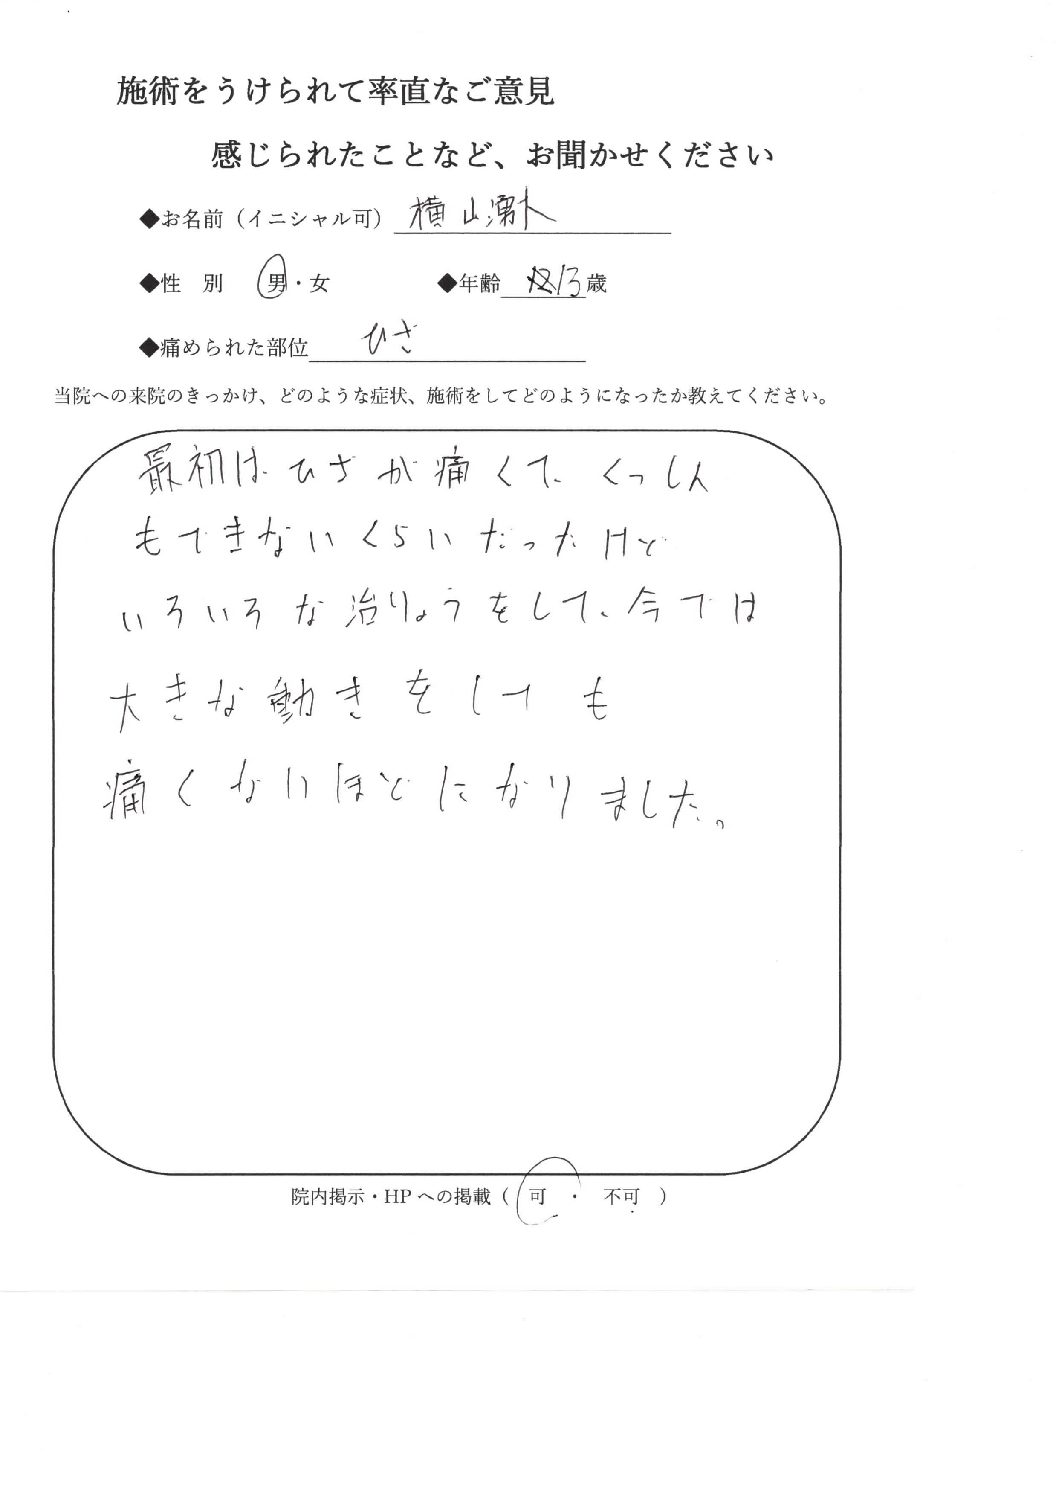 施術をうけられて率直なご意見
感じられたことなど、お聞かせください
◆お名前（イニシャル可） 横山湧人
◆性 別 男・女 ◆年齢 13歳
◆痛められた部位 ひざ
当院への来院のきっかけ、どのような症状、施術をしてどのようになったか教えてください。
最初は ひざが痛くて、くっしん
もできないくらいだったけど
いろいろな治りょうをして、今では
大きな動きをしても
痛くないほどになりました。
院内掲示・HPへの掲載（ 可 ・ 不可 ）